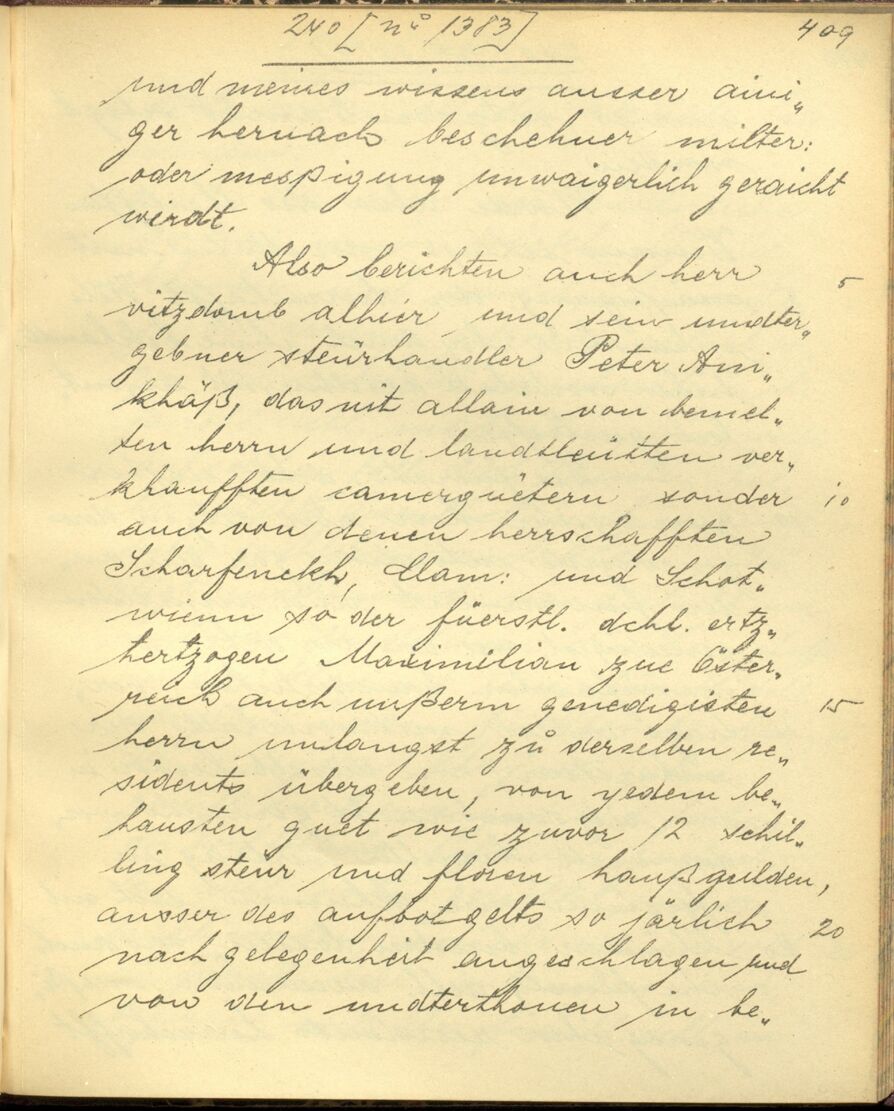 240 [nº 1383] 409
und meines wissens ausser aini„
ger hernach beschehner milter:
oder mespigung unwaigerlich geraicht
wirdt.
Also berichten auch herr 5
vitzdomb alhier und sein undter„
gebner steürhandler Peter Ami„
khäß, das nit allain von bemel„
ten herrn und landtleütten ver„
khaufften camergüetern sonder 10
auch von denen herrschafften
Scharfenckh, Clam: und Schot„
wienn so der füerstl. dchl. ertz„
hertzogen Maximilian zue Öster„
reich auch unßerm genedigisten 15
herrn unlangst zů derselben re„
sidents übergeben, von yedem be„
hausten guet wie zuvor 12 schil„
ling steur und floren haußgulden,
ausser des aufbotgelts so järlich 20
nach gelegenheit angeschlagen und
von den undterthonen in be„